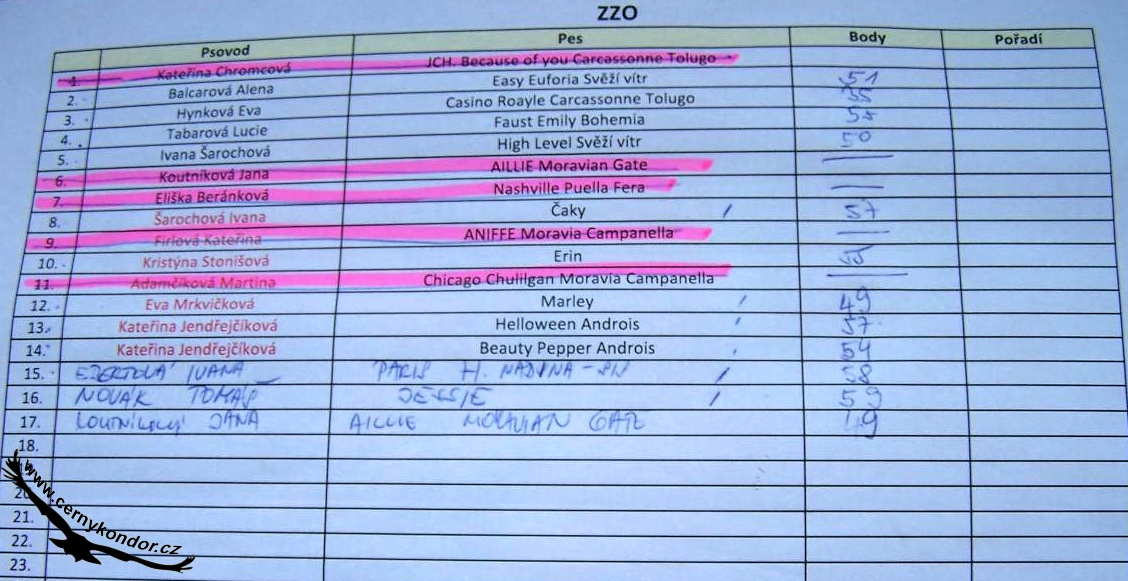 ZZO
Psovod Pes Body Pořadí
1. Kateřina Chromcová JCH. Because of you Carcassonne Tolugo
2. Balcarová Alena Easy Euforia Svěží vítr 51
3. Hynková Eva Casino Roayle Carcassonne Tolugo
4. Tabarová Lucie Faust Emily Bohemia
5. Ivana Šarochová High Level Svěží vítr 50
6. Koutníková Jana AILLIE Moravian Gate
7. Eliška Beránková Nashville Puella Fera
8. Šarochová Ivana Čaky 57
9. Firlová Kateřina ANIFFE Moravia Campanella
10. Kristýna Stonišová Erin
11. Adamčíková Martina Chicago Chulilgan Moravia Campanella
12. Eva Mrkvičková Marley 49
13. Kateřina Jendřejčíková Helloween Androis 57
14. Kateřina Jendřejčíková Beauty Pepper Androis 54
15. EBERTOVÁ IVANA PARIS H. 58
16. NOVÁK TOMÁŠ JESSIE 59
17. JANA AILLIE MORAVIAN GATE 49
18.
19.
20.
21.
22.
23.
www.cernykondor.cz